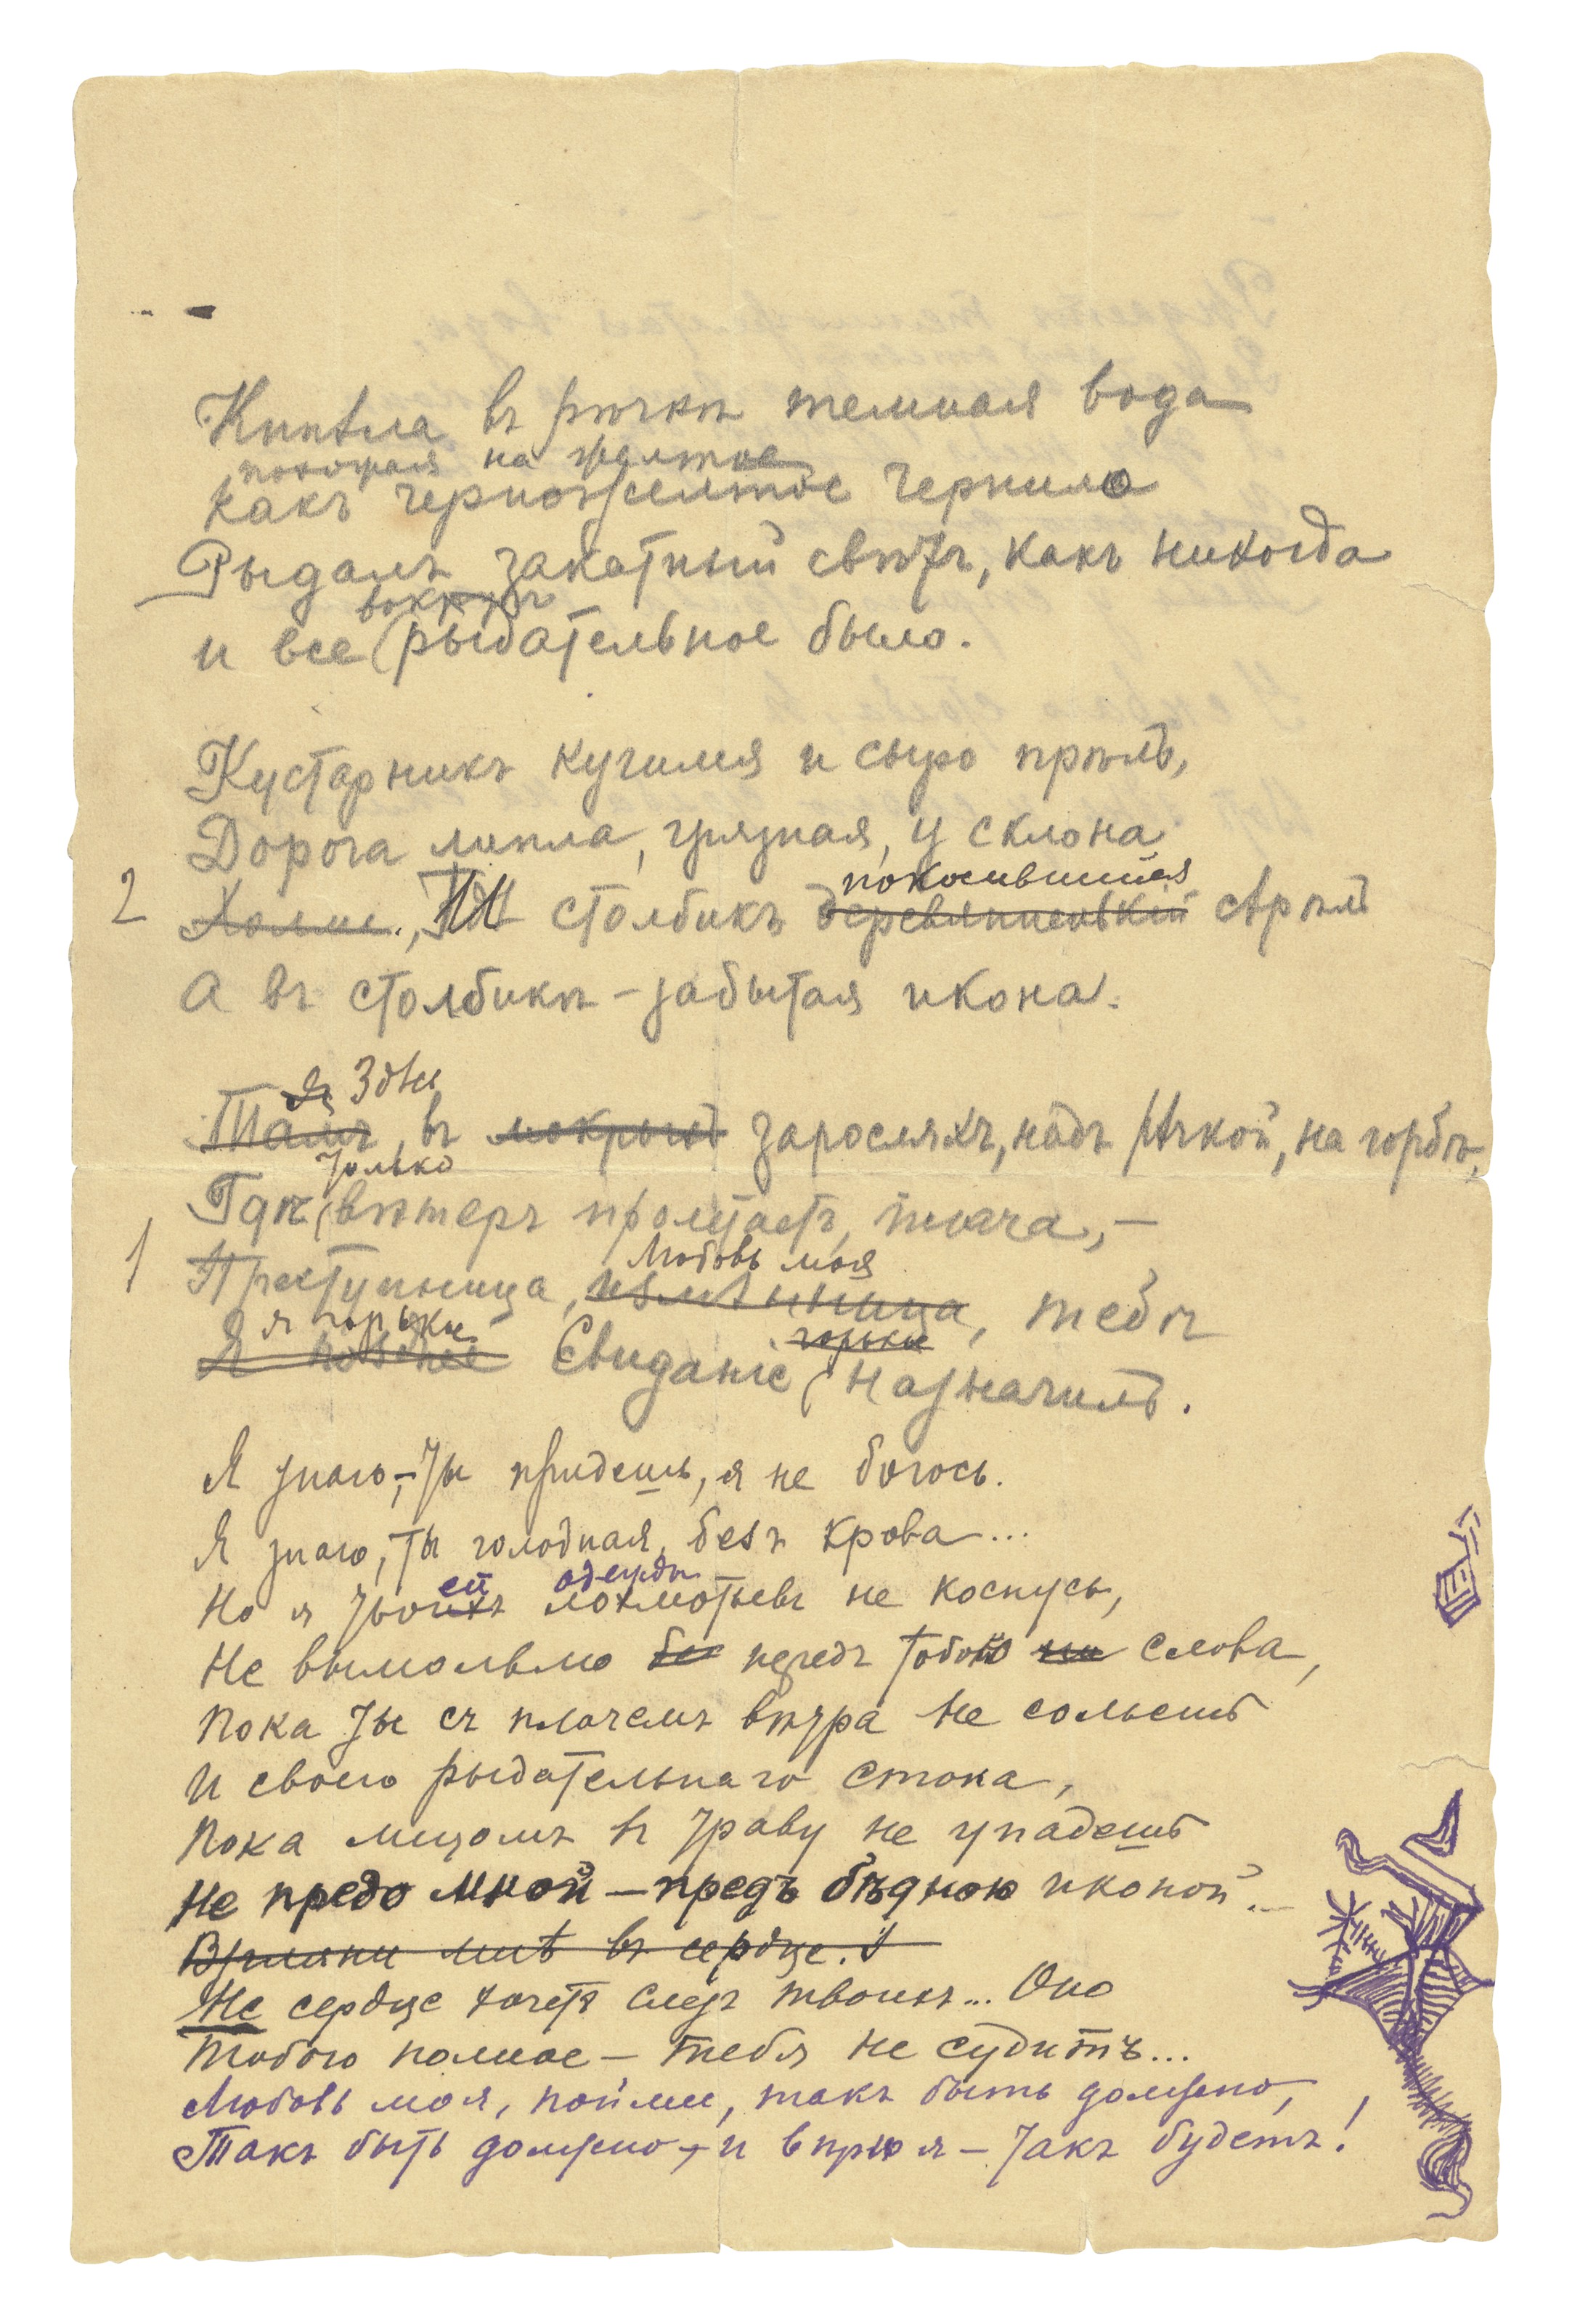 Кипѣла въ рѣчкѣ темная вода
похожая на желтое
какъ черножелтое чернило
Рыдалъ закатный свѣтъ, какъ никогда
вокругъ
и все рыдательное было.
Кустарникъ кучился и сыро прѣлъ,
Дорога липла, грязная, у склона
покосившийся
2 Холма., И столбикъ деревянненькій сѣрѣлъ
А въ столбикѣ – забытая икона.
Я Здѣсь
Тамъ, въ мокрыхъ заросляхъ, надъ рѣчкой, на горбѣ,
только
Гдѣ вѣтеръ пролетаетъ, плача, –
Любовь моя
1 Преступница, измѣнница, тебѣ
я горькое горькое
Я позднее Свиданіе назначилъ.
Я знаю, – ты придешь, я не боюсь.
Я знаю, ты голодная, безъ крова...
ей одежды
Но я твоихъ лохмотьевъ не коснусь,
Не вымолвлю бы передъ тобой ни слова,
Пока ты съ плачемъ вѣтра не сольешь
И своего рыдательнаго стона,
Пока лицомъ въ траву не упадешь
Не предо мной – предъ бѣдною иконой...
Взгляни мнѣ въ сердце.
Не сердце хочетъ слезъ твоихъ... Оно
Тобою полное – тебя не судитъ...
Любовь моя, пойми, такъ быть должно,
Такъ быть должно, – и вѣрю я – такъ будетъ!